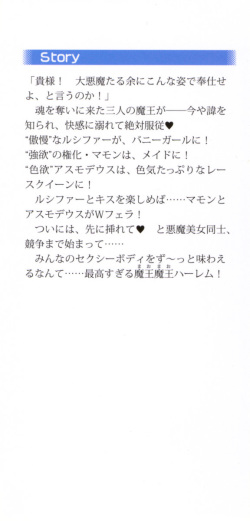 Story
「貴様！　大悪魔たる余にこんな姿で奉仕せ
よ、と言うのか！」
　魂を奪いに来た三人の魔王が――今や諱を
知られ、快感に溺れて絶対服従♥
“傲慢”なルシファーが、バニーガールに！
“強欲”の権化・マモンは、メイドに！
“色欲”アスモデウスは、色気たっぷりなレー
スクイーンに！
　ルシファーとキスを楽しめば……マモンと
アスモデウスがWフェラ！
　ついには、先に挿れて♥　と悪魔美女同士、
競争まで始まって……
　みんなのセクシーボディをず～っと味わえ
るなんて……最高すぎる魔王魔王ハーレム！